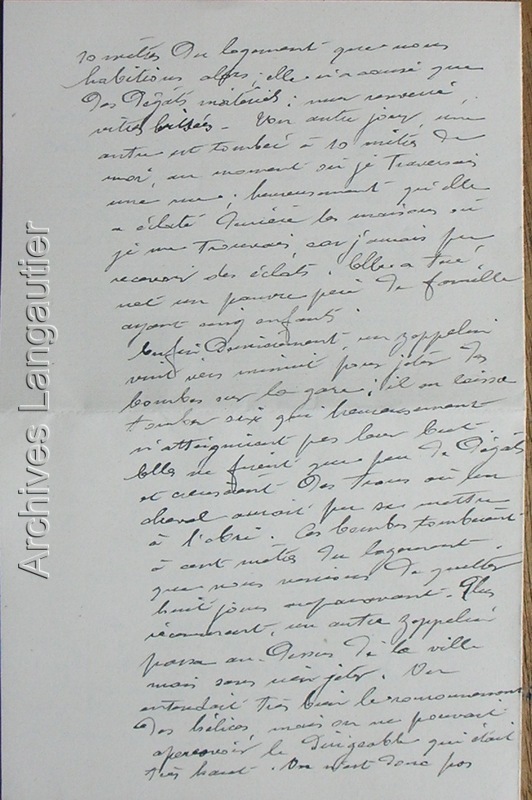 10 mètres du logement que nous
habitions alors ; elle n'a causé que
des dégâts matériels ; mur renversé,
vitres brisées - Un autre jour, une
autre est tombée à 10 mètres de
moi, au moment où je traversais
une rue ; heureusement qu'elle
a éclaté derrière les maisons où
je me trouvais car j'aurais pu
recevoir des éclats. Elle a tué
net un pauvre père de famille
ayant cinq enfants.
Enfin dernièrement, un zeppelin
vint vers minuit pour jeter des
bombes sur la gare ; il en laissa
tomber six qui heureusement
n'atteignirent pas leur but.
Elles ne firent que peu de dégâts
et creusèrent des trous où un
cheval aurait pu se mettre
à l'abri. Ces bombes tombèrent
à cent mètres du logement
que nous venions de quitter
huit jours auparavant. Plus
récemment, un autre zeppelin
passa au-dessus de la ville
mais sans rien jeter. On
entendait très bien le ronronnement
des hélices, mais on ne pouvait
apercevoir le dirigeable qui était
très haut. On n'est donc pas
Archives Langautier